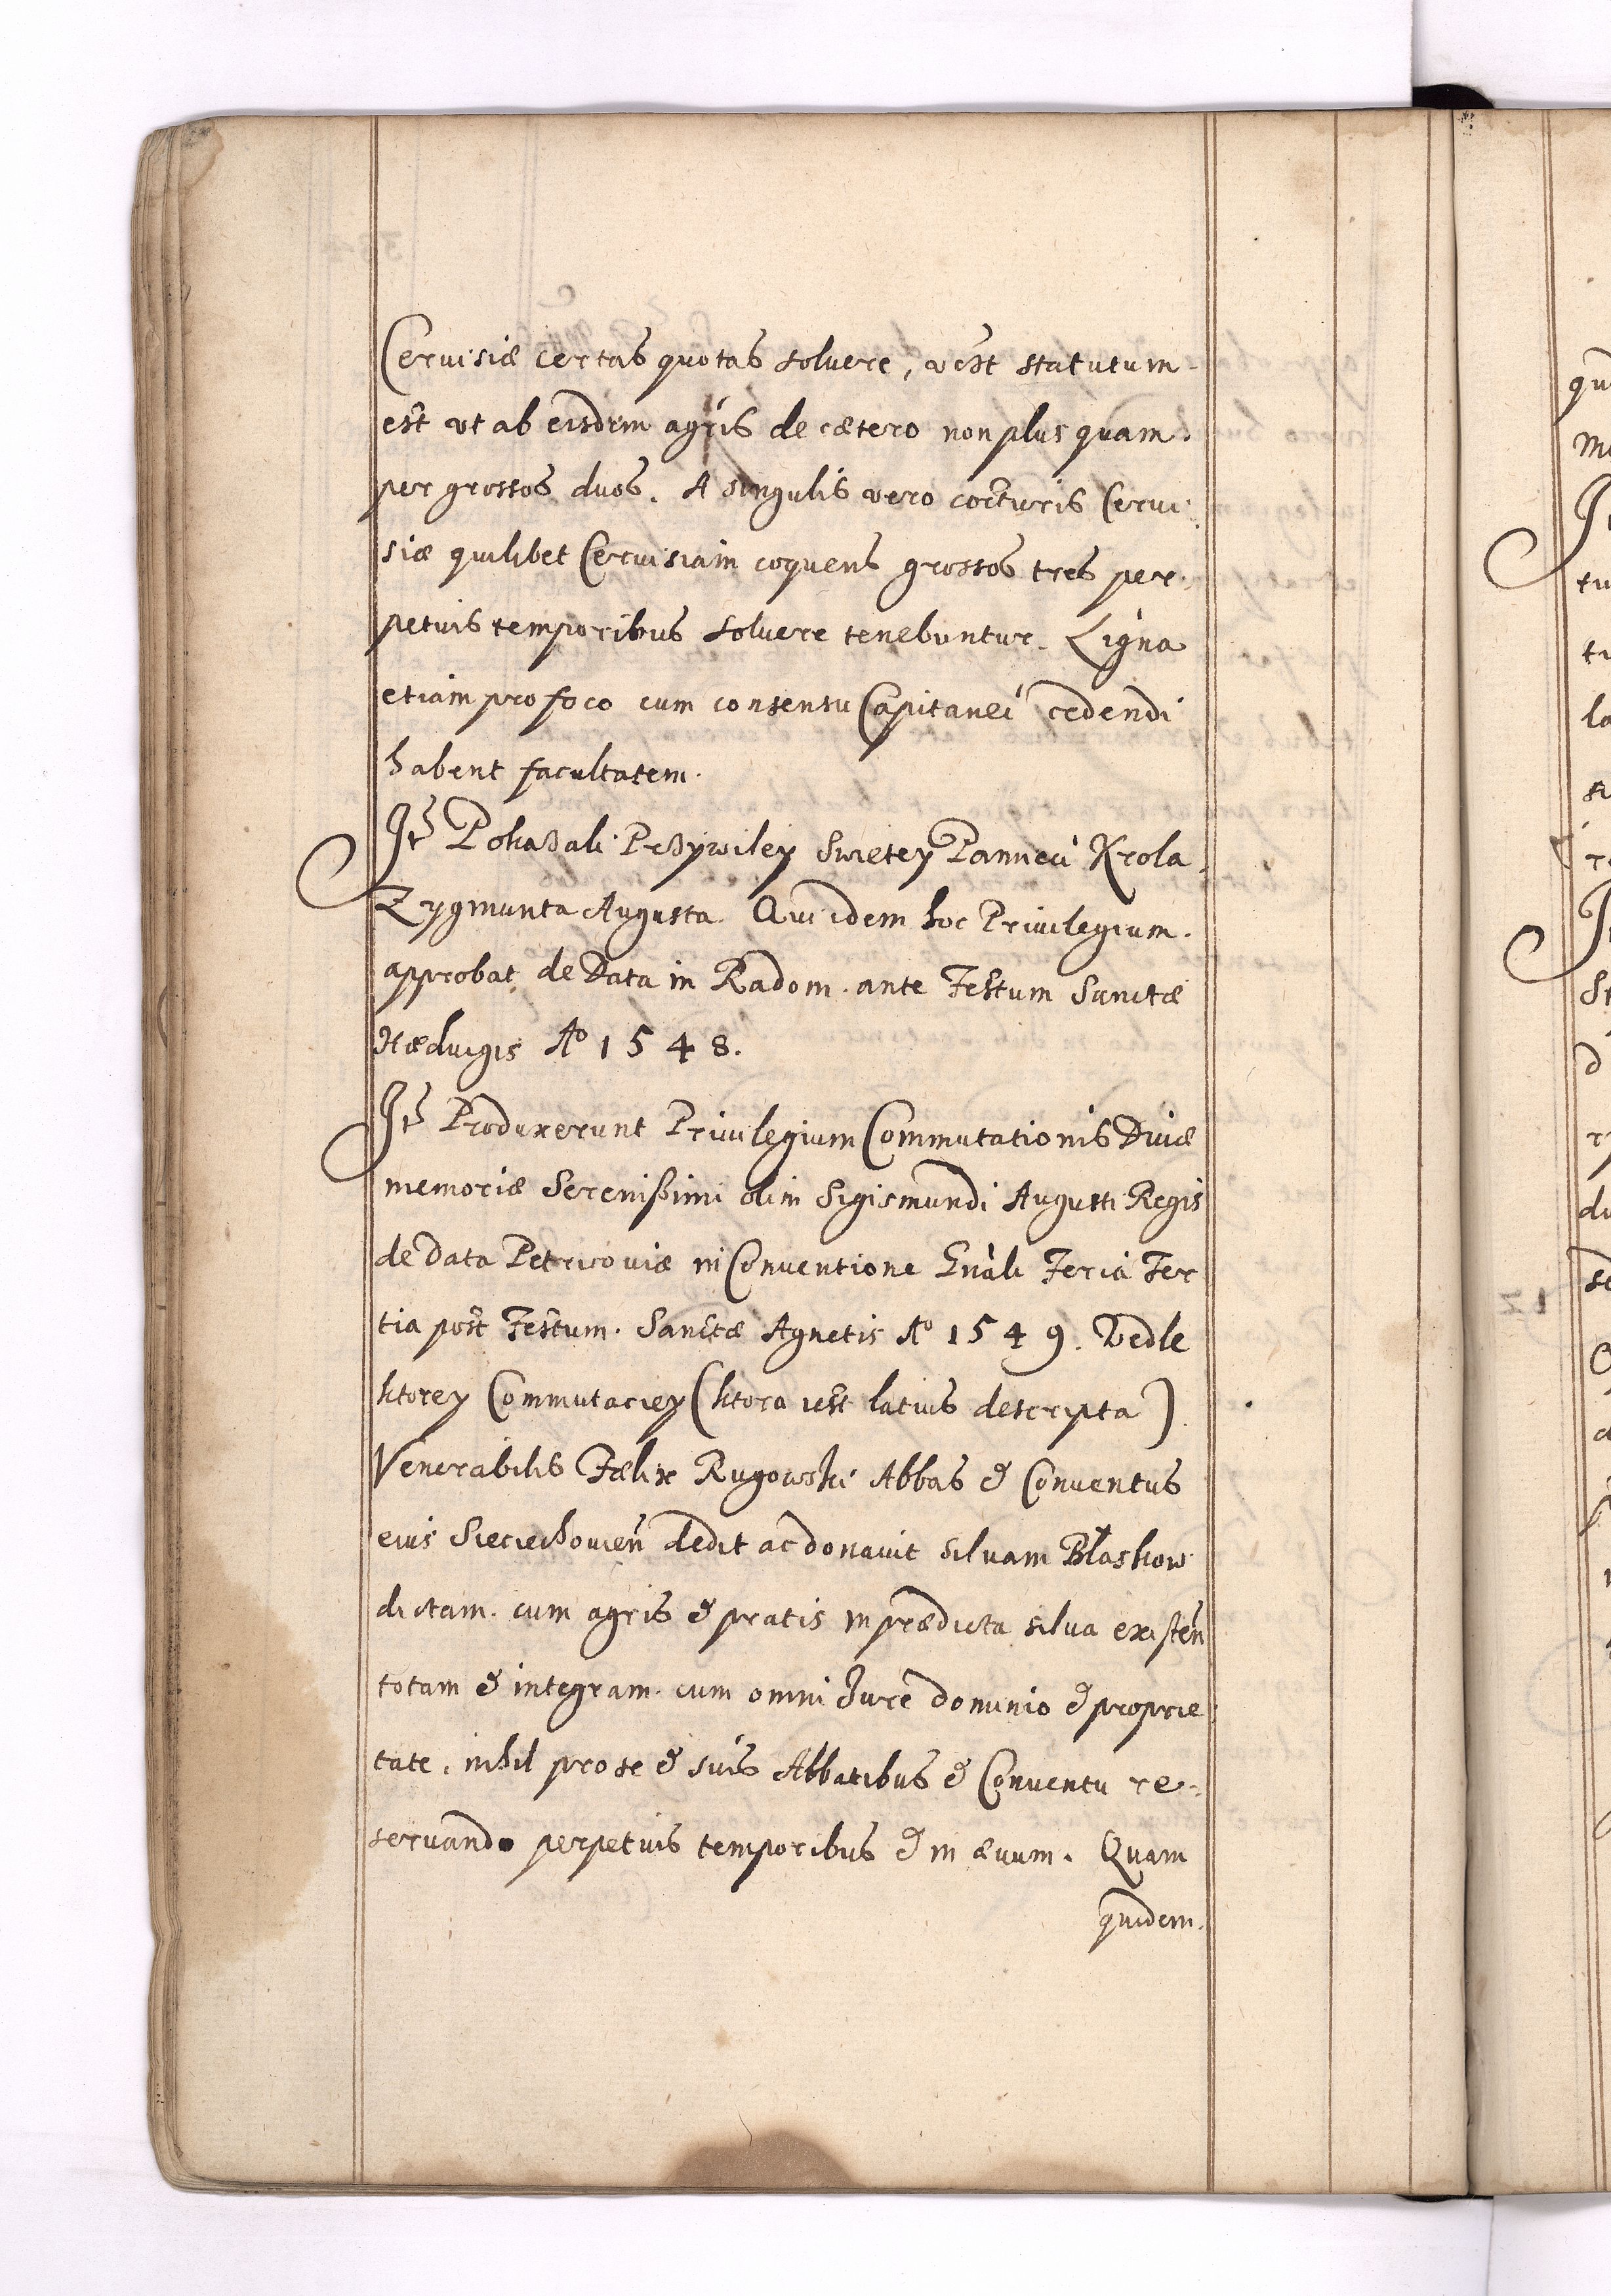 Ceruisiæ certas quotas soluere, vest statutum
est vt ab eisdem agris de cætero non plus quam
per grossos duos. A singulis vero cocturis Cerui-
siæ quilibet Ceruisiam coquens grossos tres per-
petuis temporibus soluere tenebuntur. Ligna
etiam pro foco cum consensu Capitanei cedendi
habent facultatem.
Itē Pokazali Przywiley Swietey Pamieci Krola
Zygmunta Augusta. Qui idem hoc Priuilegium
approbat de Data in Radom ante Festum Sanctæ
Hæduigis Aº 1548.
Itē Produxerunt Priuilegium Commutationis Diuæ
memoriæ Serenißimi olim Sigismundi Augusti Regis
de data Petricouiæ in Conuentione Gnali Feria Ter
tia post Festum Sanctæ Agnetis Aº 1549. Vedle
ktorey Commutaciey (ktora iest latius descripta)
Venerabilis Fælix Rugowski Abbas & Conuentus
eius Sieciechouien dedit ac donauit siluam Błaskow
dictam cum agris & pratis in prædicta silua existen
totam & integram cum omni Iure dominio & proprie
tate, nihil pro se & suis Abbatibus & Conuentu re-
seruando perpetuis temporibus & in æuum. Quam
quidem.